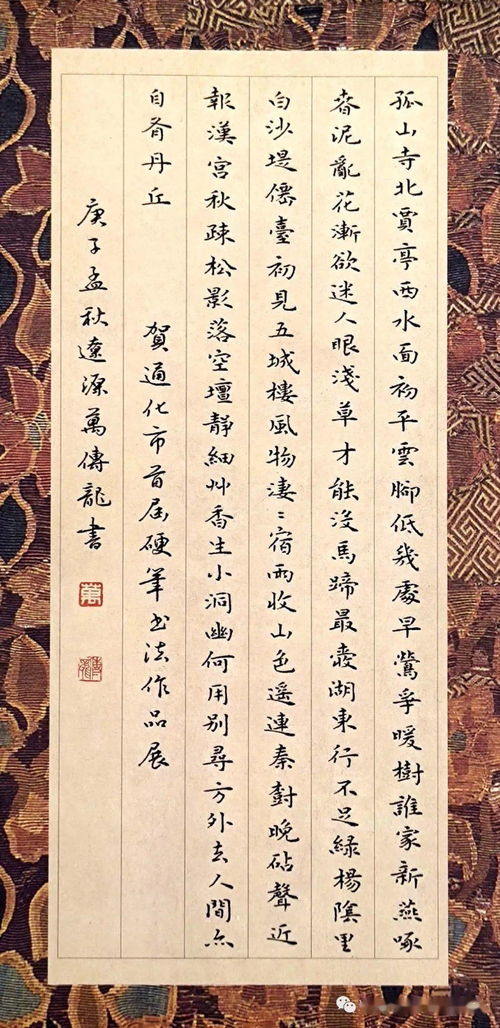 孤山寺北賈亭西水面初平雲腳低幾處早鶯爭暖樹誰家新燕啄
春泥亂花漸欲迷人眼淺草才能沒馬蹄最愛湖東行不足綠楊陰里
白沙堤僊臺初見五城樓風物淒〻宿雨收山色遥連秦樹晚砧聲近
報漢宮秋疎松影落空壇靜細艸香生小洞幽何用別尋方外去人間亦
自有丹丘 賀通化市首屆硬筆书法作品展
庚子孟秋遼源萬傳龍書
萬